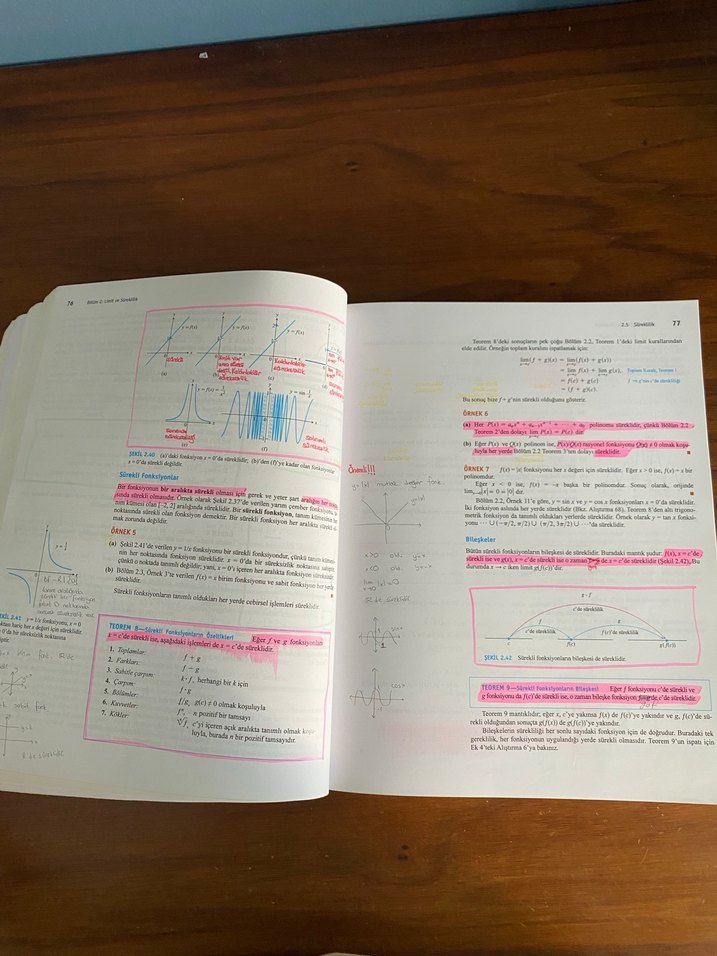 76 Bölüm 2: Limit ve Süreklilik
y = f(x)
y = f(x)
y = f(x)
sürekli
(a)
(b)
(c)
(d)
y = f(x) = 1/x²
y = sin 1/x
(e)
(f)
ŞEKİL 2.40 (a)'daki fonksiyon x = 0'da süreklidir; (b)'den (f)'ye kadar olan fonksiyonlar
x = 0'da sürekli değildir.
Sürekli Fonksiyonlar
Bir fonksiyonun bir aralıkta sürekli olması için gerek ve yeter şart aralığın her nokta-
sında sürekli olmasıdır. Örnek olarak Şekil 2.37'de verilen yarım çember fonksiyonu,
tanım kümesi olan [-2, 2] aralığında süreklidir. Bir sürekli fonksiyon, tanım kümesinin her
noktasında sürekli olan fonksiyon demektir. Bir sürekli fonksiyon her aralıkta sürekli ol-
mak zorunda değildir.
ÖRNEK 5
(a) Şekil 2.41'de verilen y = 1/x fonksiyonu bir sürekli fonksiyondur, çünkü tanım kümesi-
nin her noktasında fonksiyon süreklidir. x = 0'da bir süreksizlik noktasına sahiptir,
çünkü o nokta tanımlı değildir; yani, x = 0'ı içeren her aralıkta fonksiyon süreksizdir.
(b) Bölüm 2.3, Örnek 3'te verilen f(x) = x birim fonksiyonu ve sabit fonksiyon her yerde
süreklidir.
Sürekli fonksiyonların tanımlı oldukları her yerde cebirsel işlemleri süreklidir.
ŞEKİL 2.41 y = 1/x fonksiyonu, x = 0
noktası hariç her x değeri için süreklidir.
TEOREM 8—Sürekli Fonksiyonların Özellikleri Eğer f ve g fonksiyonları
x = c'de sürekli ise, aşağıdaki işlemleri de x = c'de süreklidir.
1. Toplamlar: f + g
2. Farkları: f − g
3. Sabitle çarpım: k · f, herhangi bir k için
4. Çarpım: f · g
5. Bölümler: f/g, g(c) ≠ 0 olmak koşuluyla
6. Kuvvetler: fⁿ, n pozitif bir tamsayı
7. Kökler: ⁿ√f, c'yi içeren açık aralıkta tanımlı olmak koşu-
luyla, burada n bir pozitif tamsayıdır.
2.5 Süreklilik 77
Teorem 8'deki sonuçların pek çoğu Bölüm 2.2, Teorem 1'deki limit kurallarından
elde edilir. Örneğin toplam kuralını ispatlamak için:
lim (f + g)(x) = lim (f(x) + g(x))
= lim f(x) + lim g(x), Toplam Kuralı, Teorem 1
= f(c) + g(c) f ve g'nin c'de sürekliliği
= (f + g)(c).
Bu sonuç bize f + g'nin sürekli olduğunu gösterir.
ÖRNEK 6
(a) Her P(x) = aₙxⁿ + aₙ₋₁xⁿ⁻¹ + ··· + a₀ polinomu süreklidir, çünkü Bölüm 2.2
Teorem 2'den dolayı lim P(x) = P(c) dir.
(b) Eğer P(x) ve Q(x) polinom ise, P(x)/Q(x) rasyonel fonksiyonu Q(x) ≠ 0 olmak koşu-
luyla her yerde Bölüm 2.2 Teorem 3'ten dolayı süreklidir.
Önemli!!!
y = |x| mutlak değer fonk.
y=|x|
x>0 old. y=x
x<0 old. y=-x
lim |x| = 0
x→0
sinx
cosx
ÖRNEK 7 f(x) = |x| fonksiyonu her x değeri için süreklidir. Eğer x > 0 ise, f(x) = x bir
polinomdur.
Eğer x < 0 ise, f(x) = −x başka bir polinomdur. Sonuç olarak, orijinde
limₓ→₀|x| = 0 = |0| dır.
Bölüm 2.2, Örnek 11'e göre, y = sin x ve y = cos x fonksiyonları x = 0'da süreklidir.
İki fonksiyon aslında her yerde süreklidir (Bkz. Alıştırma 68). Teorem 8'den altı trigono-
metrik fonksiyon da tanımlı oldukları yerlerde süreklidir. Örnek olarak y = tan x fonksi-
yonu ··· ∪ (−π/2, π/2) ∪ (π/2, 3π/2) ∪ ···'da süreklidir.
Bileşkeler
Bütün sürekli fonksiyonların bileşkesi de süreklidir. Buradaki mantık şudur: f(x), x = c'de
sürekli ise ve g(x), x = f(c)'de sürekli ise o zaman g∘f de x = c'de süreklidir (Şekil 2.42). Bu
durumda x → c iken limit g(f(c))'dir.
g ∘ f
c'de sürekli
f
g
c'de sürekli
f(c)'de sürekli
c
f(c)
g(f(c))
ŞEKİL 2.42 Sürekli fonksiyonların bileşkesi de süreklidir.
TEOREM 9—Sürekli Fonksiyonların Bileşkesi Eğer f fonksiyonu c'de sürekli ve
g fonksiyonu da f(c)'de sürekli ise, o zaman bileşke fonksiyon g∘f de c'de süreklidir.
Teorem 9 mantıklıdır; eğer x, c'ye yakınsa f(x) de f(c)'ye yakındır ve g, f(c)'de sü-
rekli olduğundan sonuçta g(f(x)) de g(f(c))'ye yakındır.
Bileşkelerin sürekliliği her sonlu sayıdaki fonksiyon için de doğrudur. Buradaki tek
gereklilik, her fonksiyonun uygulandığı yerde sürekli olmasıdır. Teorem 9'un ispatı için
Ek 4'teki Alıştırma 6'ya bakınız.